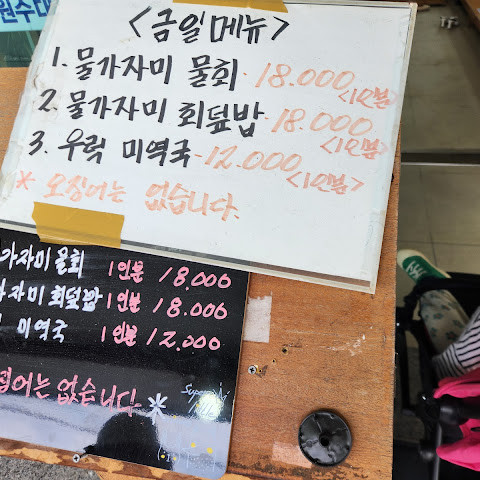 원수대
<금일메뉴>
1. 물가자미 물회 - 18.000
<1인분>
2. 물가자미 회덮밥 - 18.000
<1인분>
3. 우럭 미역국 - 12.000
<1인분>
* 오징어는 없습니다.
가자미 물회 1인분 18.000
가자미 회덮밥 1인분 18.000
미역국 1인분 12.000
징어는 없습니다. *